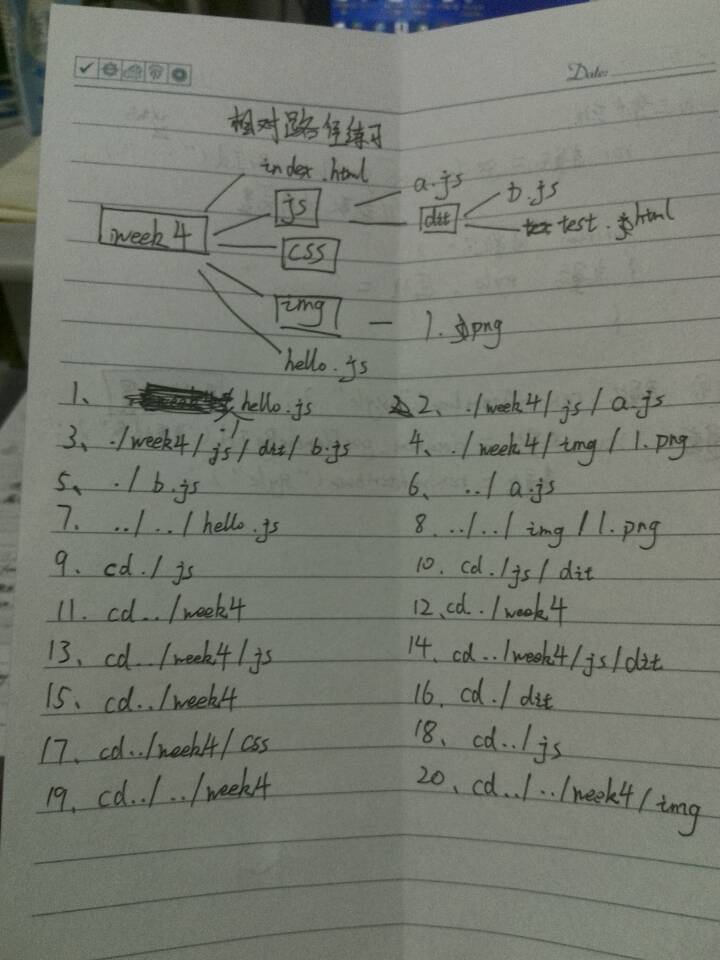 Date:
相对路径练习
index.html
a.js
b.js
js
dit
test.html
week4
css
img
1.png
hello.js
1、 ./hello.js 2、./week4/js/a.js
3、./week4/js/dit/b.js 4、./week4/img/1.png
5、./b.js 6、../a.js
7、../../hello.js 8、../../img/1.png
9、cd./js 10、cd./js/dit
11、cd../week4 12、cd../week4
13、cd../week4/js 14、cd../week4/js/dit
15、cd../week4 16、cd./dit
17、cd../week4/css 18、cd../js
19、cd../../week4 20、cd../../week4/img